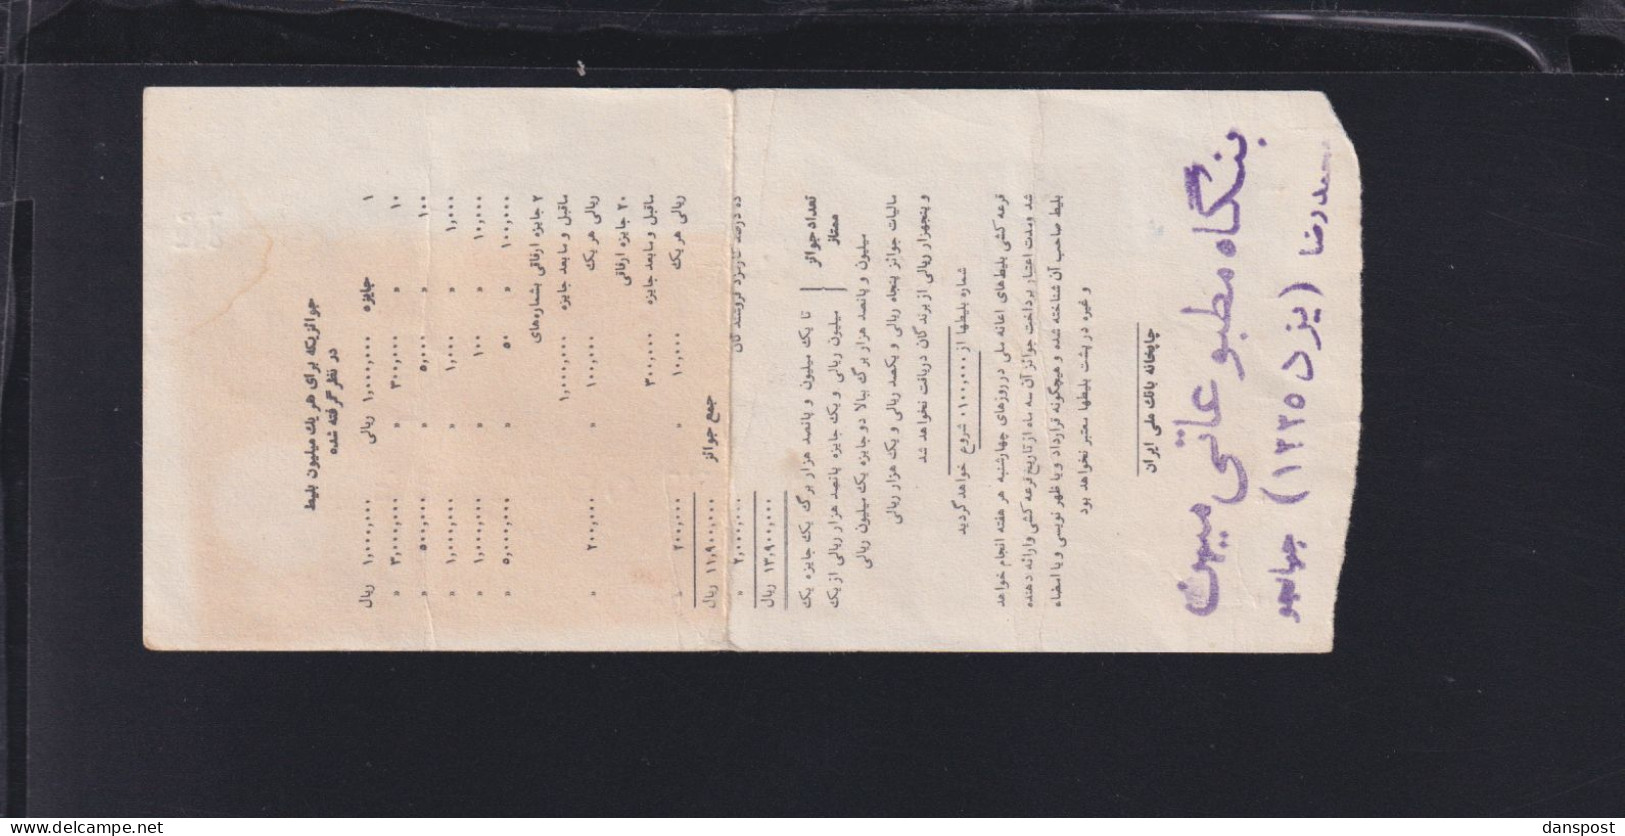 جوائزیکه برای هر یک میلیون بلیط
در نظر گرفته شده
۱ جایزه ۱,۰۰۰,۰۰۰ ریالی ۱,۰۰۰,۰۰۰ ریال
۱۰ » ۳۰۰,۰۰۰ » ۳,۰۰۰,۰۰۰ »
۱۰۰ » ۵,۰۰۰ » ۵۰۰,۰۰۰ »
۱,۰۰۰ » ۱,۰۰۰ » ۱,۰۰۰,۰۰۰ »
۱۰,۰۰۰ » ۱۰۰ » ۱,۰۰۰,۰۰۰ »
۱۰۰,۰۰۰ » ۵۰ » ۵,۰۰۰,۰۰۰ »
۲ جایزه ارفاقی بشماره‌های
ماقبل و مابعد جایزه ۱,۰۰۰,۰۰۰
ریالی هر یک ۱۰۰,۰۰۰ » ۲۰۰,۰۰۰ »
۲۰ جایزه ارفاقی
ماقبل و مابعد جایزه ۳۰۰,۰۰۰
ریالی هر یک ۱۰,۰۰۰ » ۲۰۰,۰۰۰ »
جمع جوائز ۱۱,۹۰۰,۰۰۰ ریال
ده درصد کارمزد فروشندگان ۲,۰۰۰,۰۰۰ »
۱۳,۹۰۰,۰۰۰ ریال
تعداد جوائز ممتاز { تا یک میلیون و پانصد هزار برگ یک جایزه یک
میلیون ریالی و یک جایزه پانصد هزار ریالی از یک
میلیون و پانصد هزار برگ ببالا دو جایزه یک میلیون ریالی
مالیات جوائز پنجاه ریالی و یکصد ریالی و یک هزار ریالی
و پنجهزار ریالی از برندگان دریافت نخواهد شد
شماره بلیطها از ۱۰۰,۰۰۰ شروع خواهد گردید
قرعه کشی بلیط‌های اعانه ملی در روزهای چهارشنبه هر هفته انجام خواهد
شد و مدت اعتبار پرداخت جوائز آن سه ماه از تاریخ قرعه کشی و ارائه دهنده
بلیط صاحب آن شناخته شده و هیچگونه قرارداد و یا ظهر نویسی و یا امضاء
و غیره در پشت بلیطها معتبر نخواهد بود
چاپخانه بانک ملی ایران
بنگاه مطبوعاتی میهن
رضا (یزد ۱۳۳۵) جهانجو
danspost